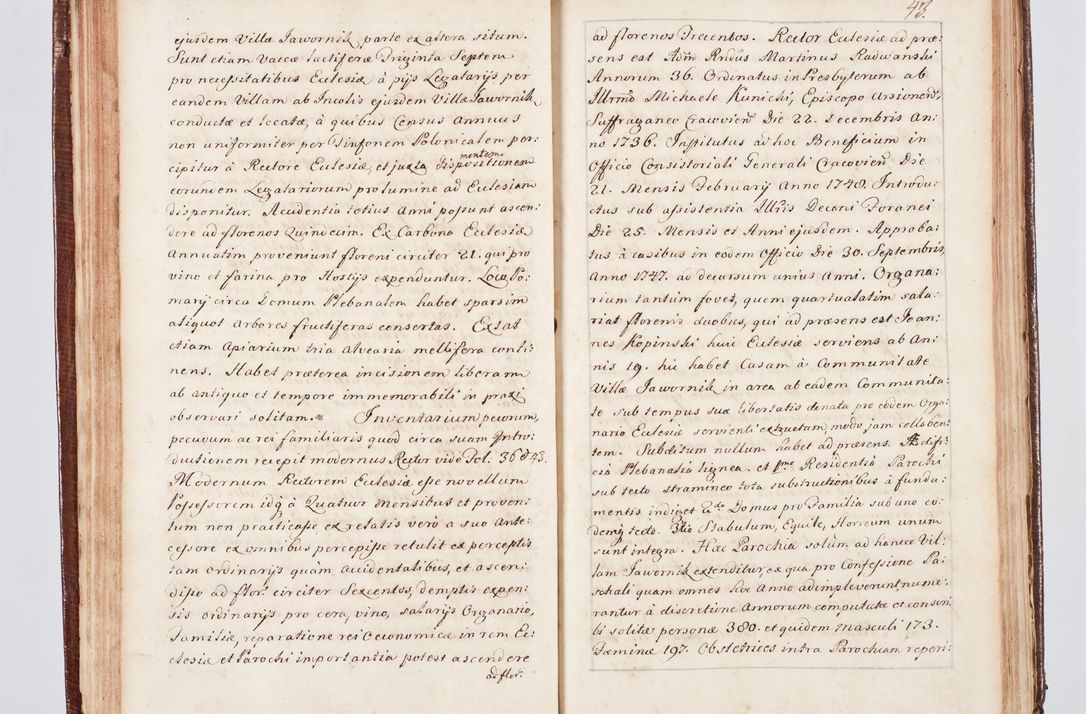 ejusdem Villæ Jawornik parte ex altera situm.
Sunt etiam Vaccæ lactiferæ Triginta Septem
pro necessitatibus Ecclesiæ à pijs Legatarijs per
eandem Villam ab Incolis ejusdem Villæ Jawornik
conductæ et locatæ, à quibus Census Annuus
non uniformiter per Tinfonem Polonicalem per:
cipitur à Rectore Ecclesiæ, et juxta mentem dispositionem
eorundem Legatariorum pro lumine ad Ecclesiam
disponitur. Accidentia totius Anni possunt ascen:
dere ad florenos Quindecim. Ex Carbona Ecclesiæ
Annuatim proveniunt floreni circiter 21. qui pro
vino et farina pro Hostijs expenduntur. Loco Po:
marij circa Domum Plebanalem habet sparsim
aliquot Arbores fructiferas consertas. Extat
etiam Apiarium tria alvearia mellifera conti:
nens. Habet præterea incisionem liberam
ab antiquo et tempore immemorabili in praxi
observari solitam. Inventarium pecorum,
pecuum ac rei familiaris quod circa suam Intro:
ductionem recepit modernus Rector vide Fol. 36 et 43.
Modernum Rectorem Ecclesiæ esse novellum
Possessorem idq à Quatuor Mensibus et proven:
tum non practicasse ex relatis verò a suo Ante:
cessore ex omnibus percepisse retulit ex perceptis
tam ordinarijs quàm accidentalibus, et ascen:
disse ad flor. circiter Sexcentos, demptis expen:
sis ordinarijs pro cera, vino, salarijs Organario,
Familiæ, reparatione rei Oeconomicæ in rem Ec:
clesiæ et Parochi importantia potest ascendere
ad flor.
43.
ad florenos Trecentos. Rector Ecclesiæ ad præ:
sens est Adm Rndus Martinus Radwanski
Annorum 36. Ordinatus in Presbyterum ab
Illrmo Michaele Kunicki, Episcopo Arsionen,
Suffraganeo Cracovien Die 22. Decembris An:
no 1736. Institutus ad hoc Beneficium in
Officio Consistoriali Generali Cracovien Die
21. Mensis February Anno 1748. Introdu:
ctus sub assistentia Illris Decani Foranei
Die 25. Mensis et Anni ejusdem. Approba:
tus à casibus in eodem Officio Die 30. Septembris
Anno 1747. ad decursum unius Anni. Organa:
rium tantum fovet, quem quartualatim sala:
riat florenis duobus, qui ad præsens est Joan:
nes Kopinski huic Ecclesiæ serviens ab An:
nis 19. hic habet Casam à Communitate
Villæ Jawornik in area ab eadem Communita:
te sub tempus suæ libertatis donata pro eodem Orga:
nario Ecclesiæ servienti extructam, modo jam collaben:
tem. Subditum nullum habet ad præsens. Ædifi:
cia Plebanalia lignea. et 1mo Residentia Parochi
sub tecto stramineo tota substructionibus à funda:
mentis indiget 2do Domus pro Familia sub uno eo:
demq tecto. 3tio Stabulum, Equile, Horreum unum
sunt integra. Hæc Parochia solùm ad hancce Vil:
lam Jawornik extenditur, ex qua pro Confessione Pa:
schali quam omnes hoc Anno adimpleverunt, nume:
rantur à discretione Annorum computatæ et conscri:
bi solitæ personæ 380. et quidem masculi 173.
Fæminæ 197. Obstetrices intra Parochiam reperi: